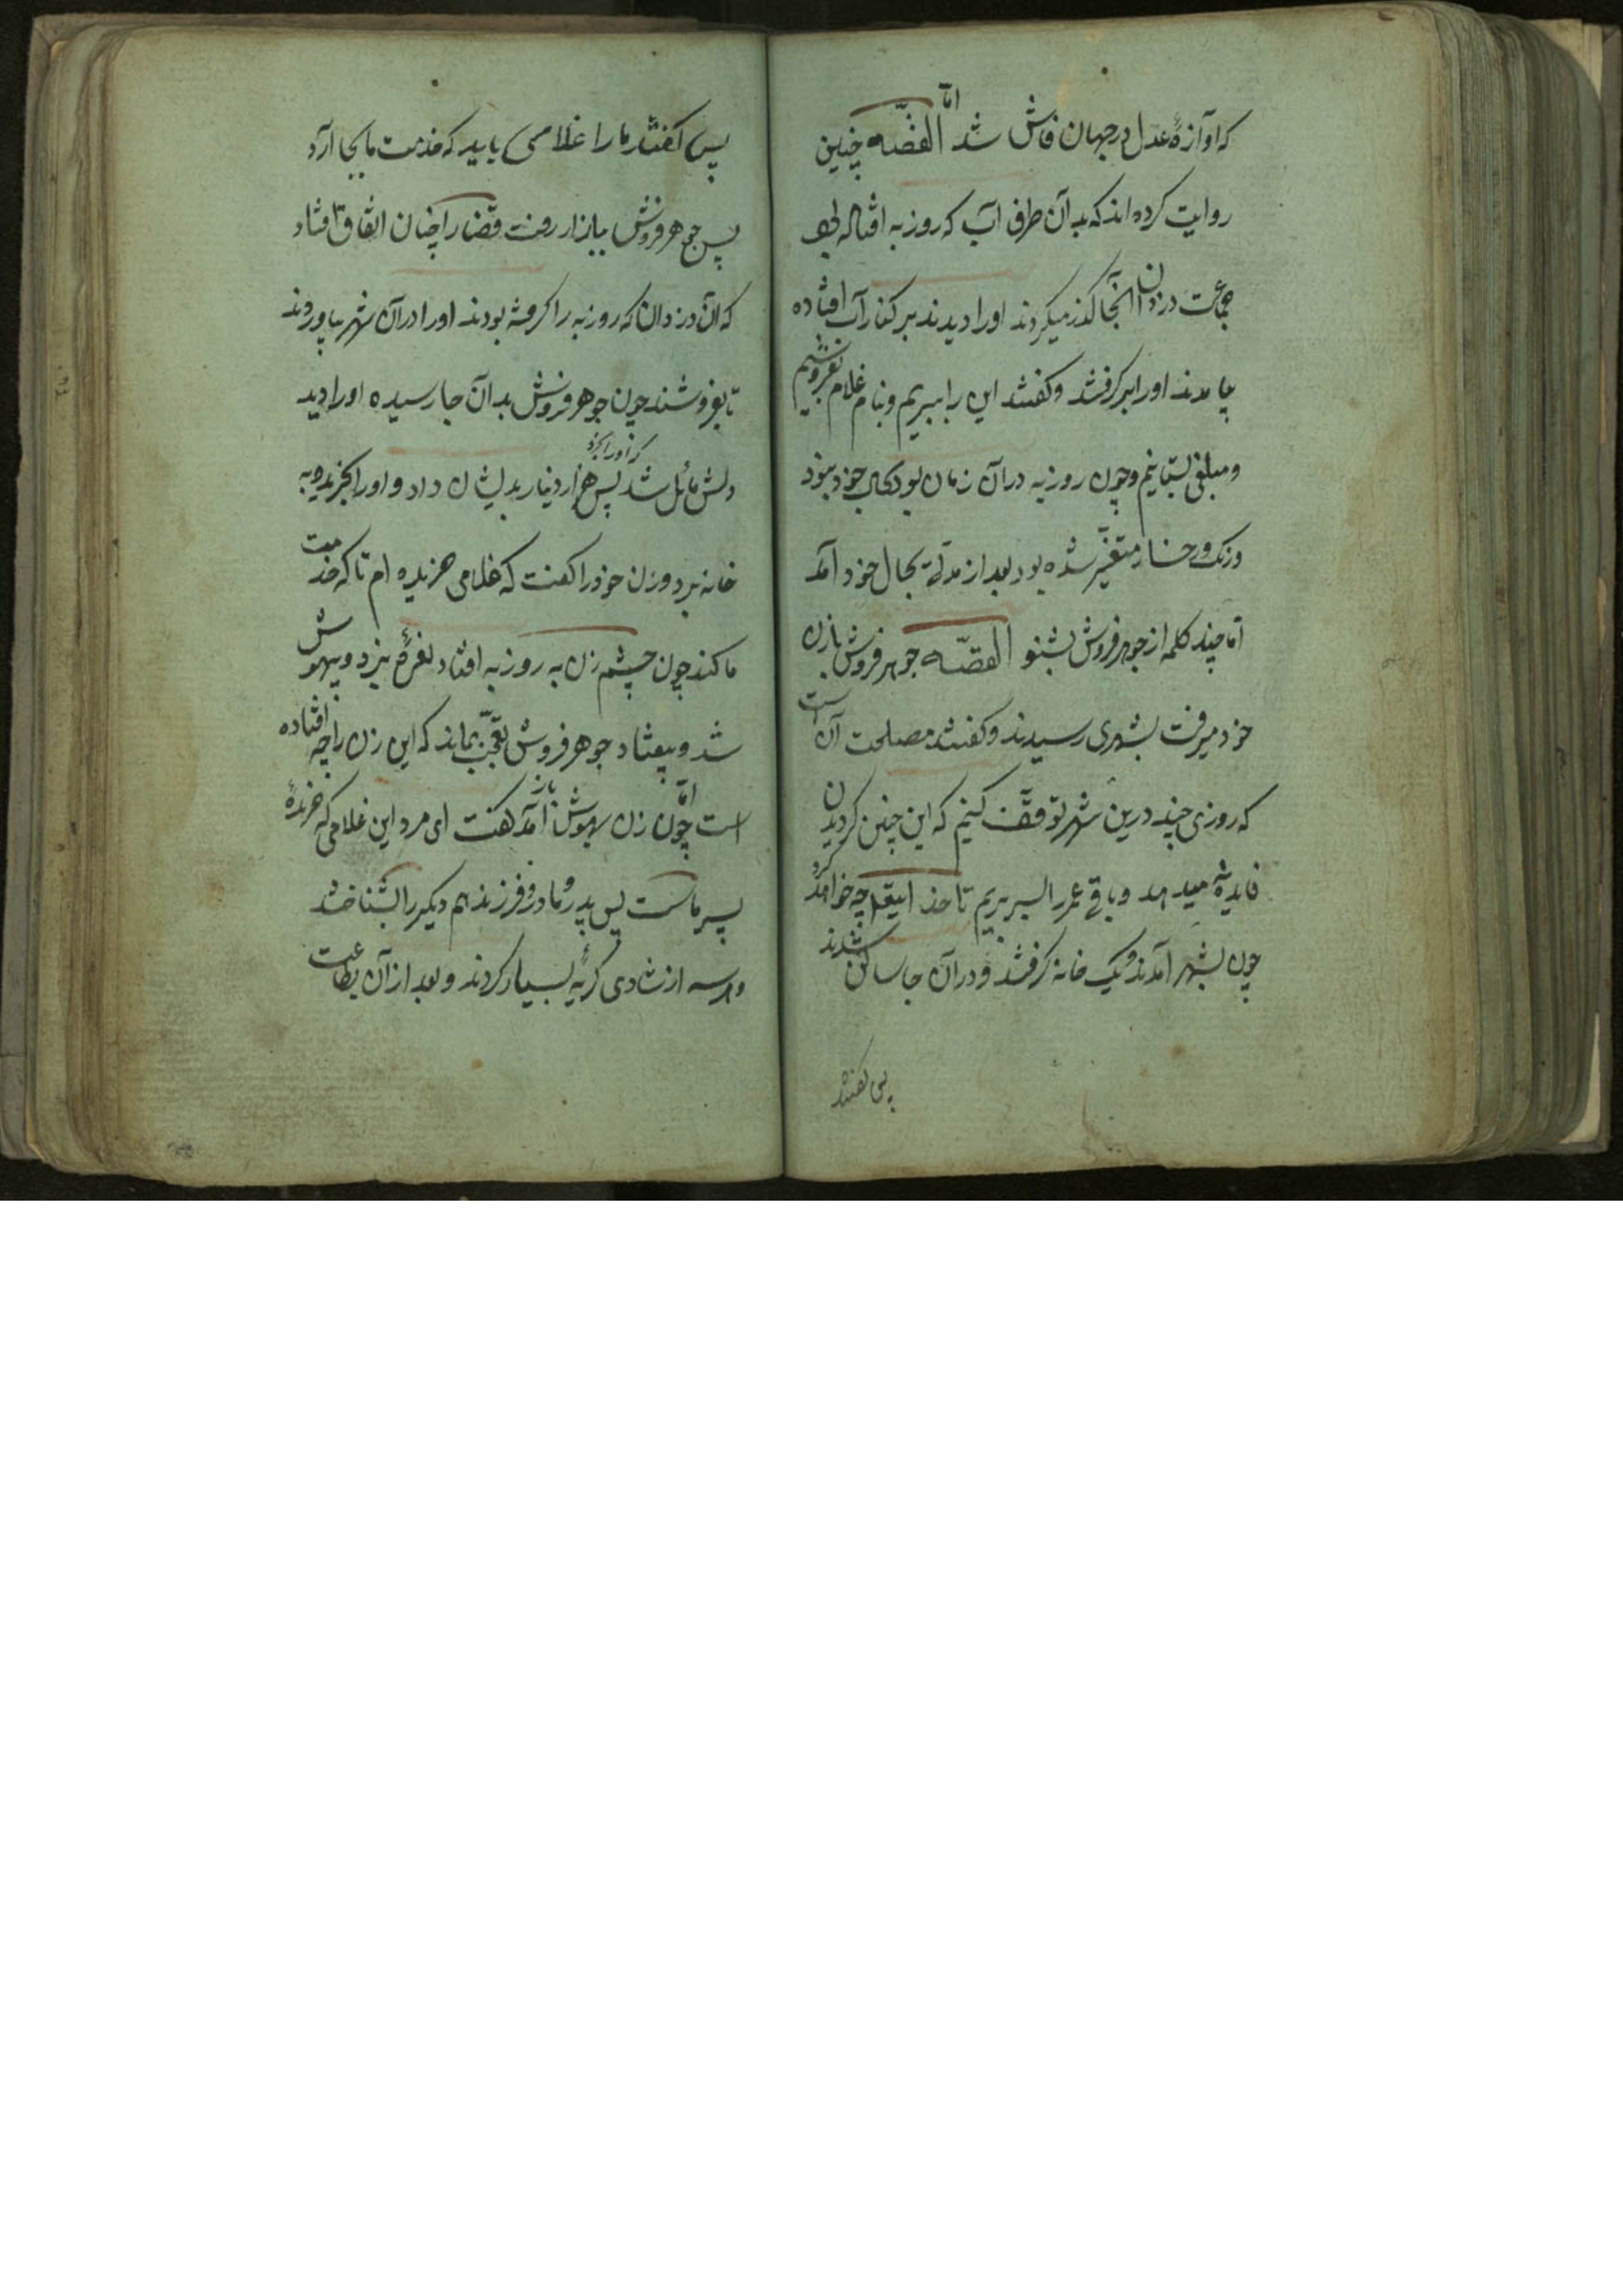 که آوازهٔ عدل او در جهان فاش شد امّا القصّه چنین
روایت کرده اند که بدان طرف آب که روزبه افتاده بود
جماعت دزدان از آنجا گذر میکردند او را دیدند بر کنار آب افتاده
بیامدند او را برگرفتند و گفتند این را ببریم و بنام غلام بفروشیم
و مبلغی بستانیم و چون روزبه در آن زمان بود بحال خود نبود
و رنگ رخسار متغیّر شده بود بعد از مدتی بحال خود آمد
امّا چند کلمه از جوهر فروش بشنو القصّه جوهر فروش با زن
خود میرفت بشهری رسیدند و گفتند مصلحت آن است
که روزی چند درین شهر توقّف کنیم که این چنین گردیدن
فایده نمیدهد و باقی عمر را بسر بریم تا خدایتعالی چه خواهد کرد
چون بشهر آمدند و یک خانه گرفتند و در آن جا ساکن شدند
پس گفتند
پس گفتند ما را غلامی باید که خدمت ما بجا آرد
پس جوهر فروش ببازار رفت قضا را چنان اتفاق افتاد
که آن دزدان که روزبه را گرفته بودند او را در آن شهر بیاوردند
تا بفروشند چون جوهر فروش بدان جا رسیده او را دید
دلش مائل شد که او را بخرد پس هزار دینار بدیشان داد و او را بخرید و به
خانه برد و زن خود را گفت که غلامی خریده ام تا که خدمت
ما کند چون چشم زن به روزبه افتاد نعرهٔ بزد و بیهوش
شد و بیفتاد جوهر فروش تعجّب بماند که این زن را چه افتاده
است امّا چون زن بهوش باز آمد گفت ای مرد این غلامی که خریدهٔ
پسر ماست پس پدر و مادر و فرزند هم دیگر را بشناختند
و هر سه از شادی گریهٔ بسیار کردند و بعد از آن بطاعت